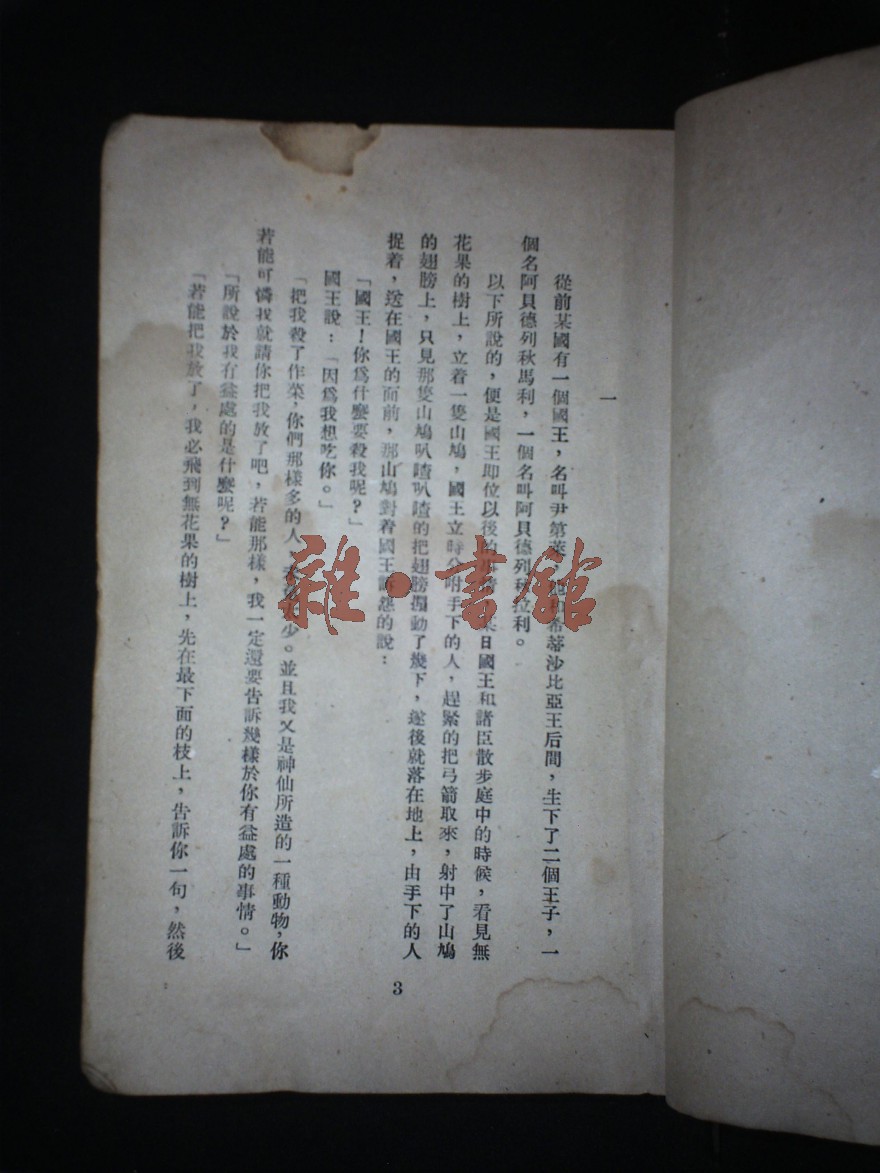 一
從前某國有一個國王，名叫尹第萊 和希蒂沙比亞王后間，生下了二個王子，一
個名阿貝德列秋馬利，一個名叫阿貝德列秋拉利。
以下所說的，便是國王卽位以後的 某日國王和諸臣散步庭中的時候，看見無
花果的樹上，立着一隻山鳩，國王立時分咐手下的人，趕緊的把弓箭取來，射中了山鳩
的翅膀上，只見那隻山鳩叭喳叭喳的把翅膀搧動了幾下，遂後就落在地上，由手下的人
捉着，送在國王的面前，那山鳩對着國王 的說：
「國王！你爲什麼要殺我呢？」
國王說：「因爲我想吃你。」
「把我殺了作菜，你們那樣多的人， 少。並且我又是神仙所造的一種動物，你
若能可憐我就請你把我放了吧，若能那樣，我一定還要告訴幾樣於你有益處的事情。」
「所說於我有益處的是什麼呢？」
「若能把我放了，我必飛到無花果的樹上，先在最下面的枝上，告訴你一句，然後
3
雜·書館